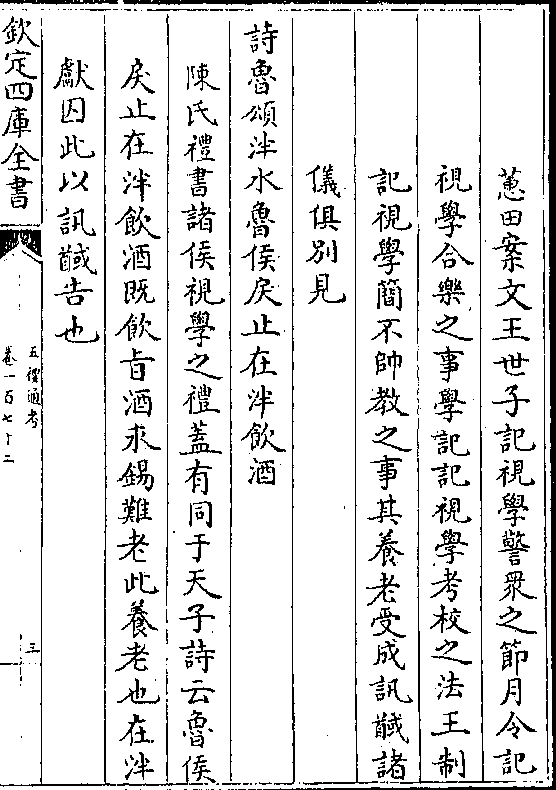 蕙田案文王世子記視學警衆之節月令記
視學合樂之事學記記視學考校之法王制
記視學簡不帥教之事其養老受成訊馘諸
儀俱別見
詩魯頌泮水魯侯戾止在泮飲酒
陳氏禮書諸侯視學之禮蓋有同于天子詩云魯侯
戾止在泮飲酒既飲旨酒永錫難老此養老也在泮
獻囚此以訊馘告也
欽定四庫全書
五禮通考
卷一百七十二
三